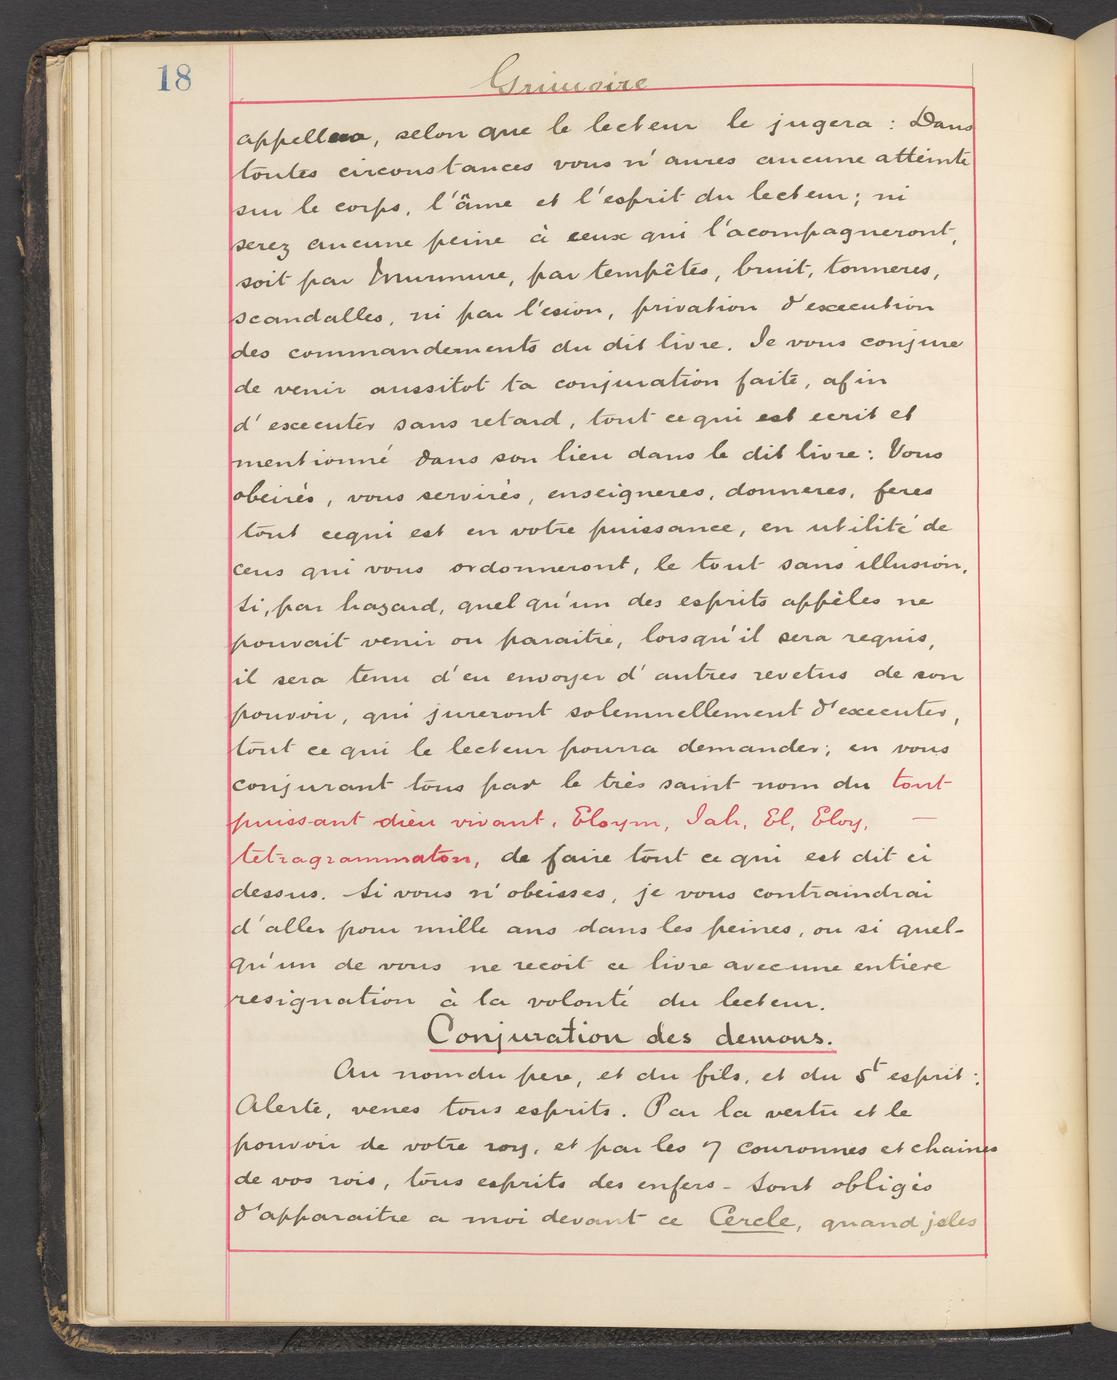 18
Grimoire
appellera, selon que le lecteur le jugera : Dans
toutes circonstances vous n'aures aucune atteinte
sur le corps, l'âme et l'esprit du lecteur; ni
serez aucune peine à ceux qui l'acompagneront,
soit par Murmure, par tempêtes, bruit, tonneres,
scandalles, ni par l'esion, privation d'execution
des commandements du dit livre. Je vous conjure
de venir aussitot ta conjuration faite, afin
d'executer sans retard, tout ce qui est ecrit et
mentionné dans son lieu dans le dit livre : Vous
obéirés, vous servirés, enseigneres, donneres, feres
tout cequi est en votre puissance, en utilité de
ceus qui vous ordonneront, le tout sans illusion,
Si, par hazard, quelqu'un des esprits appèles ne
pouvait venir ou paraitre, lorsqu'il sera requis,
il sera tenu d'en envoyer d'autres revetus de son
pouvoir, qui jureront solemnellement d'executer,
tout ce qui le lecteur pourra demander; en vous
conjurant tous par le très saint nom du tout
puissant dieu vivant, Eloym, Iah, El, Eloy, —
tetragrammaton, de faire tout ce qui est dit ci
dessus. Si vous n'obeisses, je vous contraindrai
d'aller pour mille ans dans les peines, ou si quel-
qu'un de vous ne recoit ce livre avec une entiere
resignation à la volonté du lecteur.
Conjuration des demons.
Au nom du pere, et du fils, et du St esprit :
Alerte, venes tous esprits. Par la vertu et le
pouvoir de votre roy, et par les 7 couronnes et chaines
de vos rois, tous esprits des enfers - sont obligés
d'apparaitre a moi devant ce Cercle, quand je les